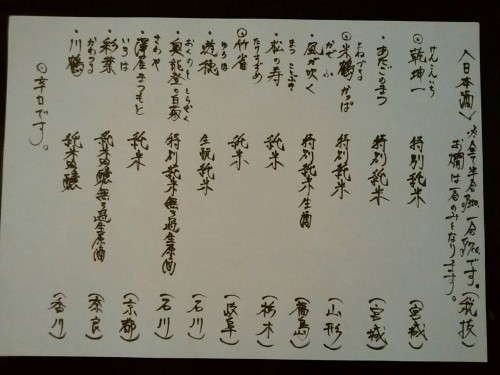 〈日本酒〉 ※全て半合 一合 です。(税抜)
お燗は一合のみとなります。
けんこんいち
◎乾坤一 特別純米 (宮城)
・あたごのまつ 特別純米 (宮城)
よねつる
◎米鶴 かっぱ 特別純米 (山形)
かぜ ふ
・風が吹く 特別純米生酒 (福島)
まつ ことぶき
・松の寿 純米 (栃木)
たけすずめ
◎竹雀 純米 (岐阜)
ゆうほ
・遊穂 生酛純米 (石川)
おくのと しらぎく
・奥能登の白菊 特別純米無ろ過生原酒 (石川)
さわや
・澤屋まつもと 純米 (京都)
いろは
・彩葉 純米吟醸無ろ過生原酒 (奈良)
かわつる
・川鶴 純米吟醸 (香川)
◎辛口です。